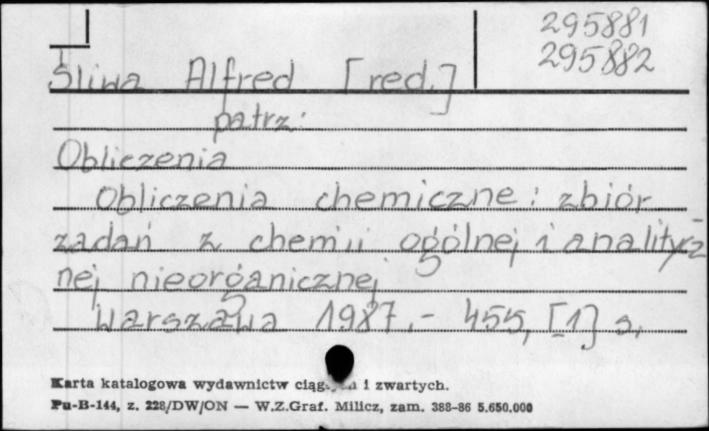 295881
295882
Śliwa Alfred [red.]
patrz:
Obliczenia
Obliczenia chemiczne: zbiór
zadań z chemii ogólnej i analitycz
nej nieorganicznej
Warszawa 1987.- 455, [1] s.
Karta katalogowa wydawnictw 1 zwartych.
Pu-B-144, z. 228/DW/ON — W.Z.Graf. Milicz, zam. 388-86 5.650.000